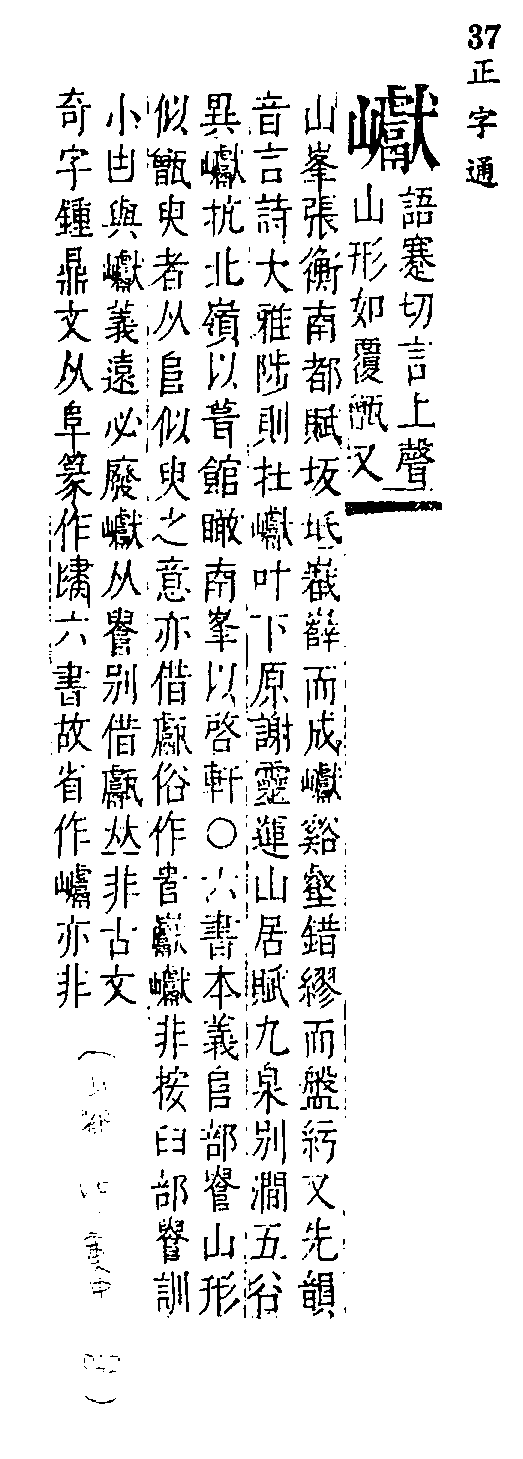 37
正字通
巘 語蹇切言上聲
山形如覆甑又
山峯張衡南都賦坂坻嶻嶭而成巘谿壑錯繆而盤紆又先韻
音言詩大雅陟則在巘叶下原謝靈運山居賦九泉別澗五谷
異巘抗北嶺以葺館瞰南峯以啓軒○六書本義𠂤部山形
似甑㬰者从𠂤似㬰之意亦借甗俗作巘非按臼部訓
小𠂤與巘義遠必廢巘从別借甗𠀤非古文
奇字鍾鼎文从阜篆作六書故省作亦非